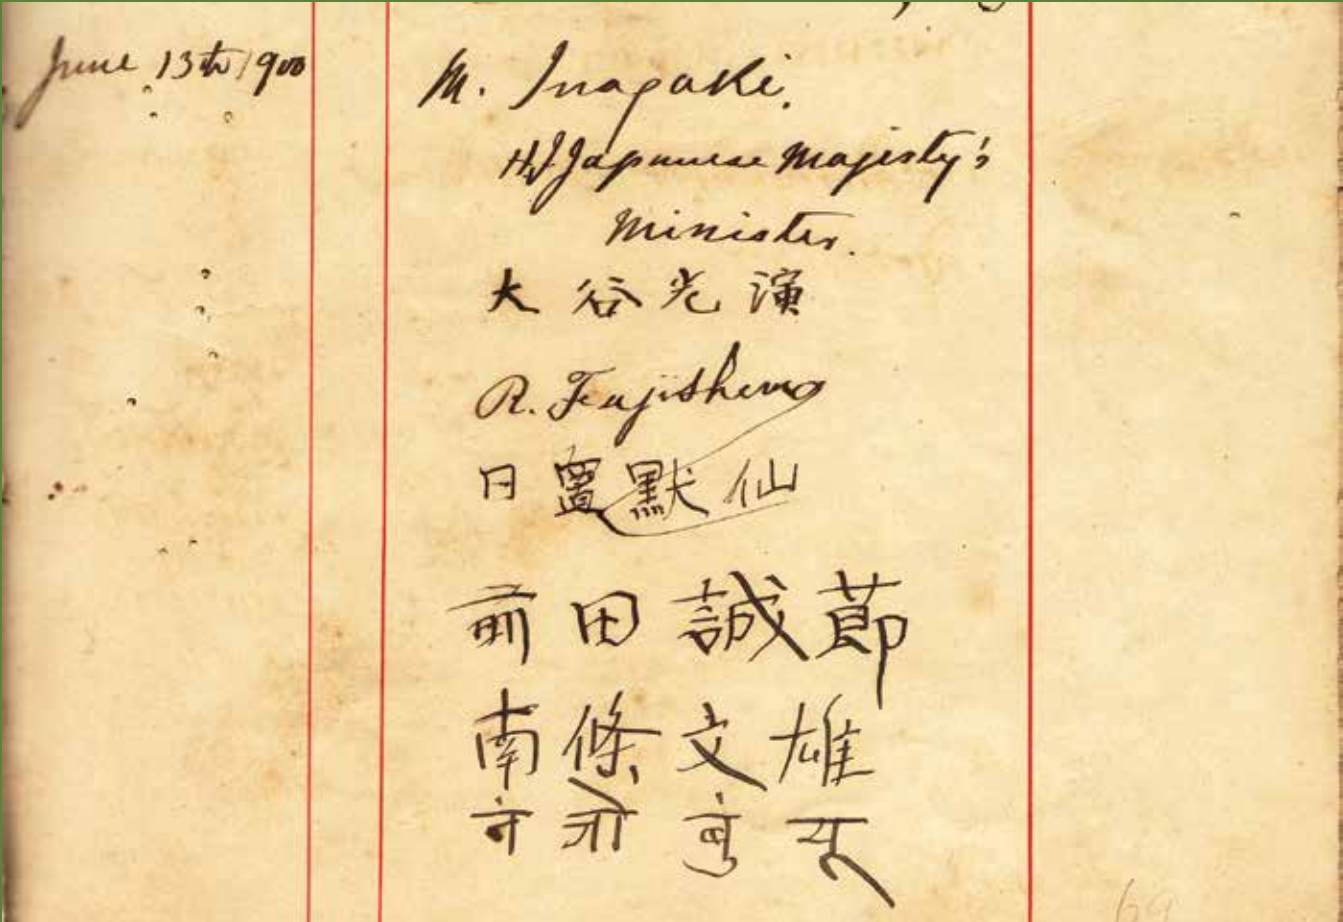 June 13th 1900
M. Inagaki.
Japanese Majesty's
Minister.
大谷光演
R.
日置默仙
前田誠莭
南條文雄